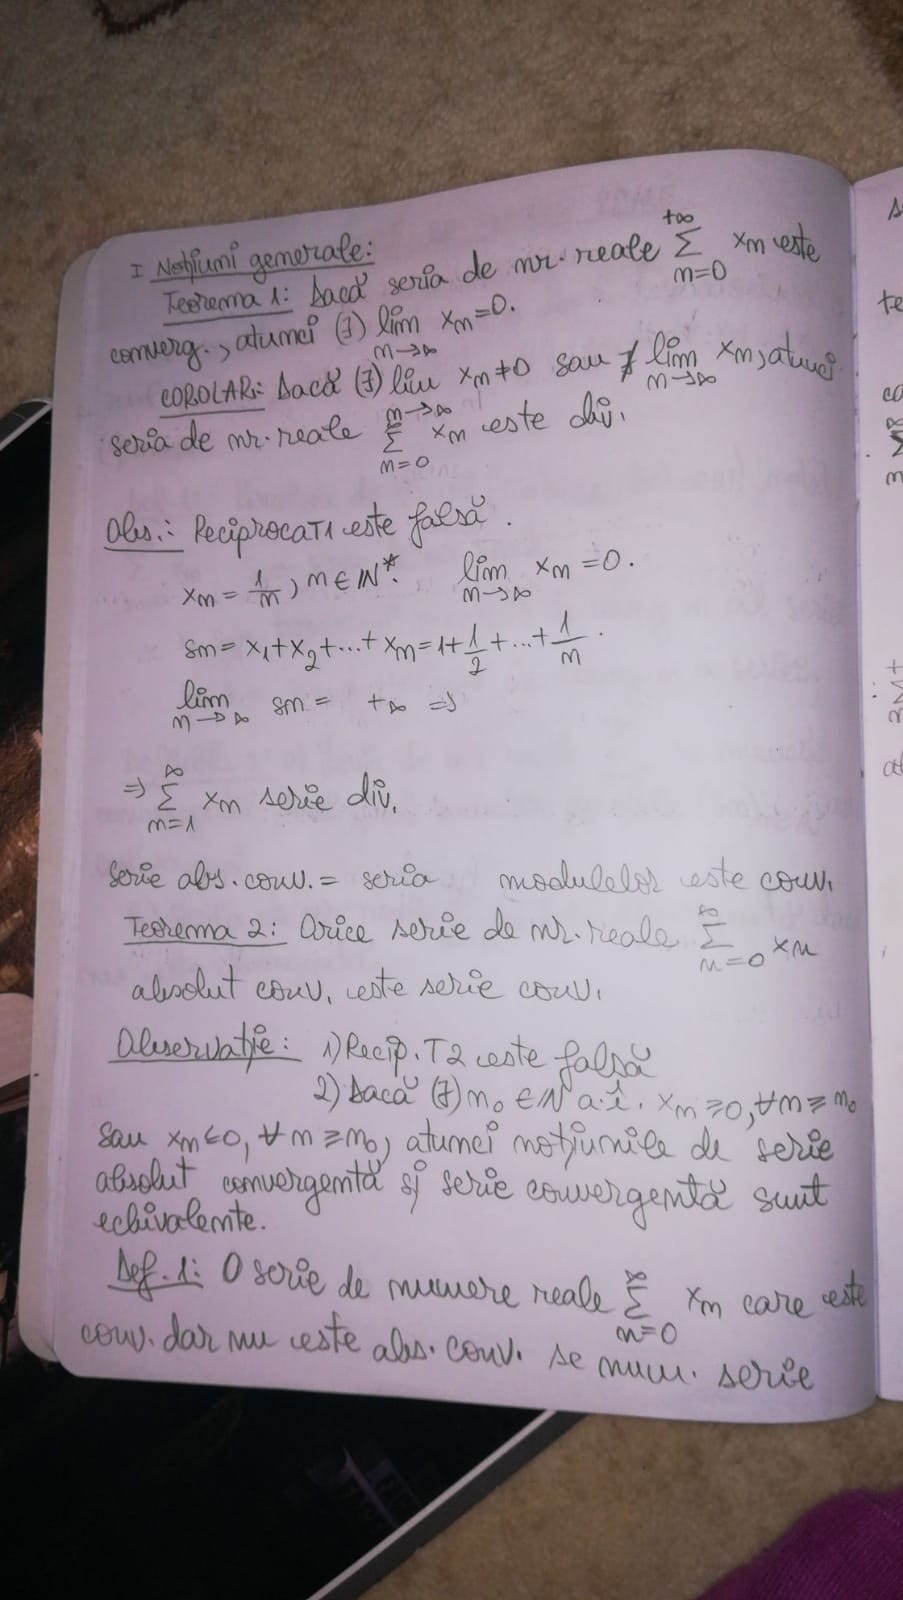 I Noțiuni generale:
Teorema 1: Dacă seria de nr. reale +∞ Σ n=0 xn este
converg., atunci (∃) lim n→∞ xn=0.
COROLAR: Dacă (∃) lim n→∞ xn≠0 sau ∄ lim n→∞ xn, atunci
seria de nr. reale ∞ Σ n=0 xn este div.
Obs.: Reciproca T1 este falsă.
xn = 1/n, n∈ℕ*. lim n→∞ xn = 0.
sn = x1+x2+...+xn = 1+1/2+...+1/n.
lim n→∞ sn = +∞ ⇒
⇒ ∞ Σ n=1 xn serie div.
serie abs. conv. = seria modulelor este conv.
Teorema 2: Orice serie de nr. reale ∞ Σ n=0 xn
absolut conv. este serie conv.
Observație: 1) Recip. T2 este falsă
2) Dacă (∃) n0 ∈ℕ a.î. xn ≥0, ∀n≥n0
sau xn≤0, ∀n≥n0, atunci noțiunile de serie
absolut convergentă și serie convergentă sunt
echivalente.
Def. 1: O serie de numere reale ∞ Σ n=0 xn care este
conv. dar nu este abs. conv. se num. serie